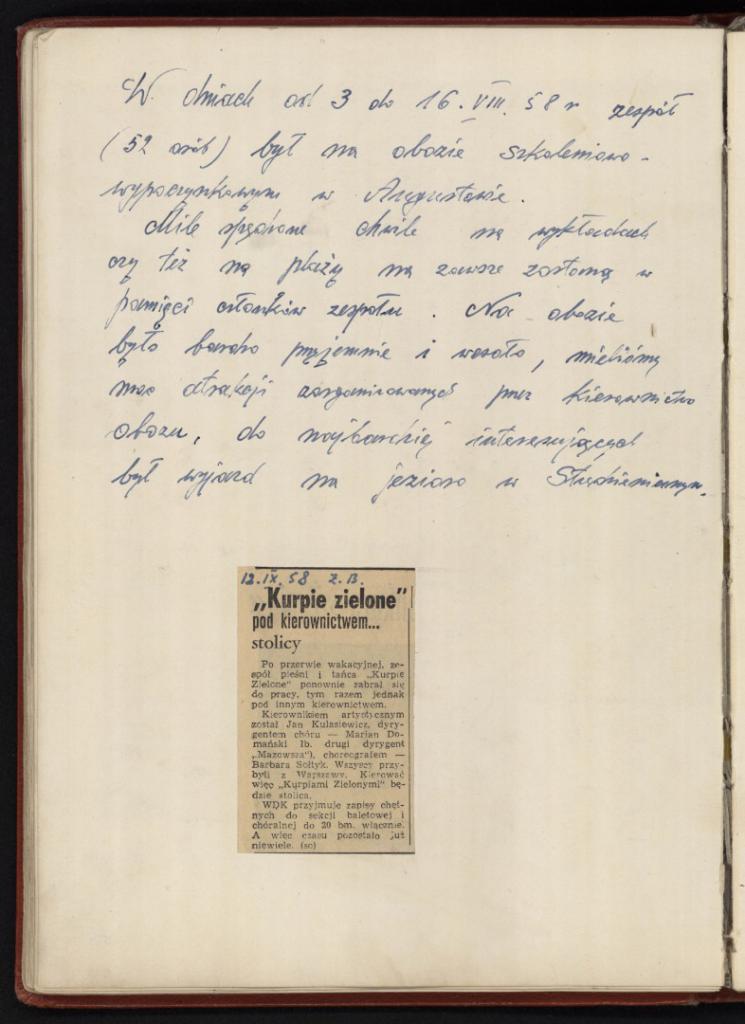 W dniach od 3 do 16. VIII. 58 r zespół
(52 osób) był na obozie szkoleniowo-
wypoczynkowym w Augustowie.
Mile spędzone chwile na wykładach
czy też na plaży na zawsze zostaną w
pamięci członków zespołu. Na obozie
było bardzo przyjemnie i wesoło, mieliśmy
moc atrakcji zorganizowanych przez kierownictwo
obozu, do najbardziej interesujących
był wyjazd na jezioro w Studzienicznym.
12.IX.58 Z.B.
„Kurpie zielone"
pod kierownictwem...
stolicy
Po przerwie wakacyjnej, ze-
spół pieśni i tańca „Kurpie
Zielone" ponownie zabrał się
do pracy, tym razem jednak
pod innym kierownictwem.
Kierownikiem artystycznym
został Jan Kulasiewicz, dyry-
gentem chóru — Marian Do-
mański (b. drugi dyrygent
„Mazowsza"), choreografem —
Barbara Sołtyk. Wszyscy przy-
byli z Warszawy. Kierować
więc „Kurpiami Zielonymi" bę-
dzie stolica.
WDK przyjmuje zapisy chęt-
nych do sekcji baletowej i
chóralnej do 20 bm. włącznie.
A więc czasu pozostało już
niewiele. (so)